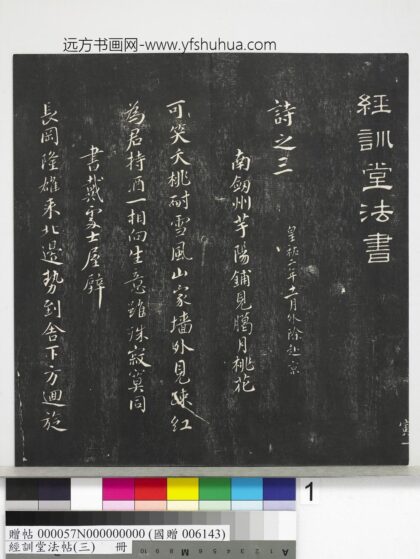 远方书画网-www.yfshuhua.com
經訓堂法書
詩之三
皇祐二年十一月外除赴京
南劔州芋陽鋪見臈月桃花
可笑夭桃耐雪風山家墻外見踈紅
為君持酒一相向生意雖殊寂寞同
書戴處士屋壁
長岡隆雄來北邊勢到舍下方迴旋
1
贈帖 000057N000000000 (國贈 006143)
經訓堂法帖(三) 冊